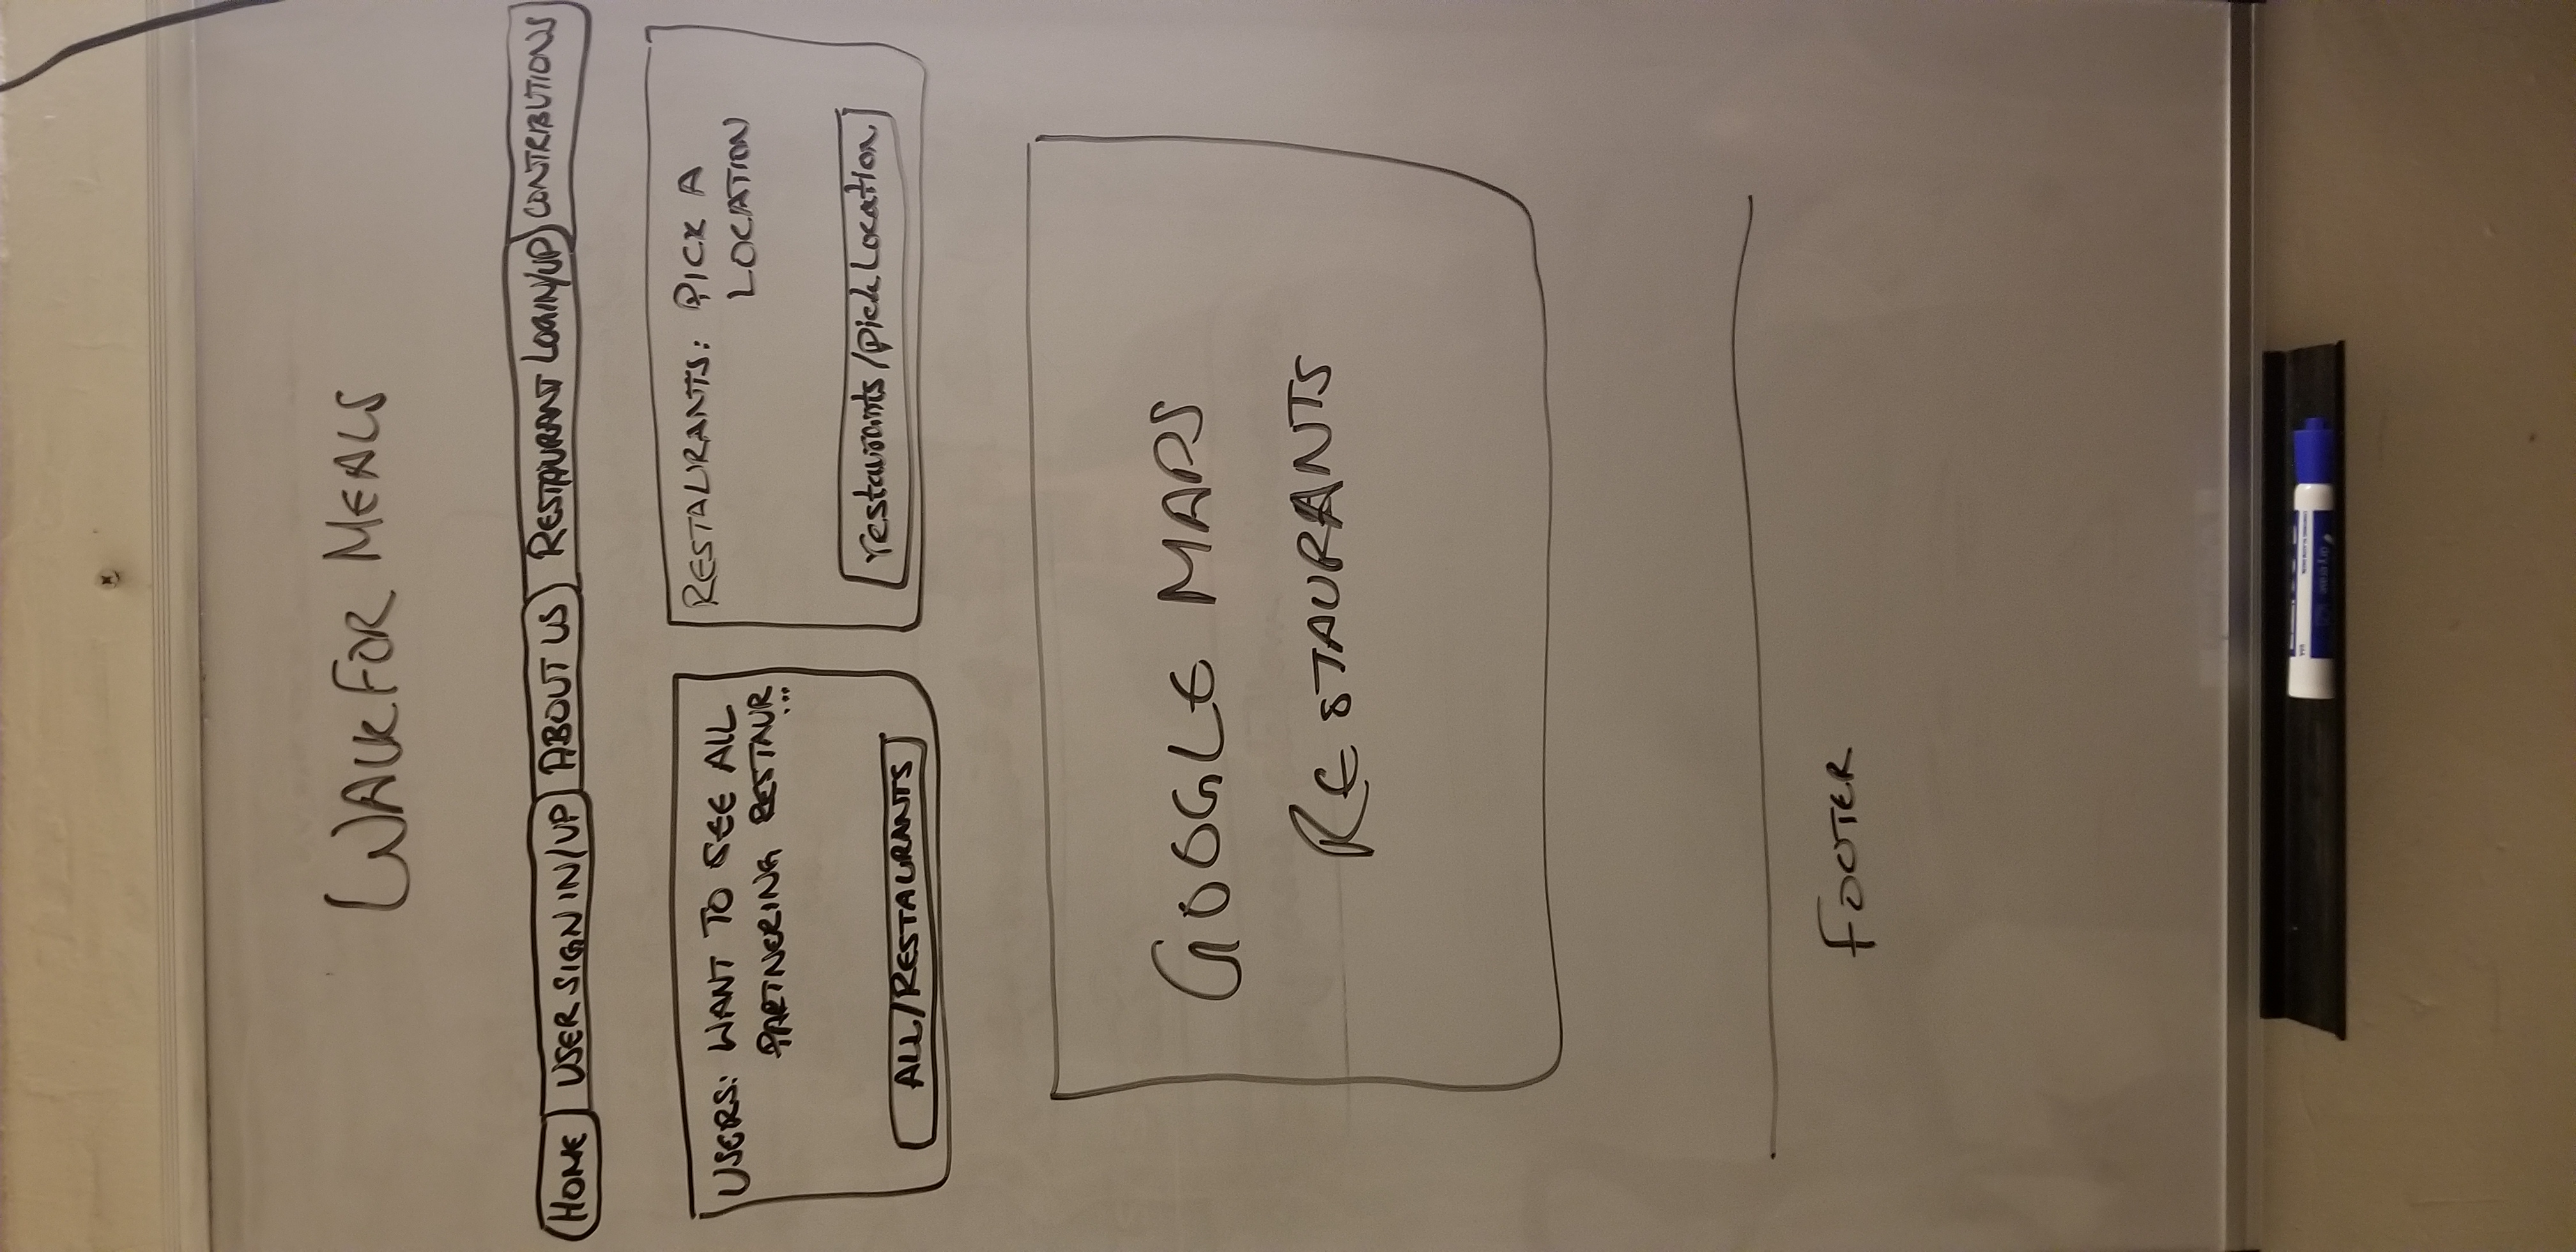 WALK FOR MEALS
HOME
USER SIGN IN/UP
ABOUT US
RESTAURANT LOGIN/UP
CONTRIBUTIONS
USERS: WANT TO SEE ALL
PARTNERING RESTAUR
...
ALL/RESTAURANTS
RESTAURANTS: PICK A
LOCATION
restaurants/pick Location
GOOGLE MAPS
RESTAURANTS
FOOTER